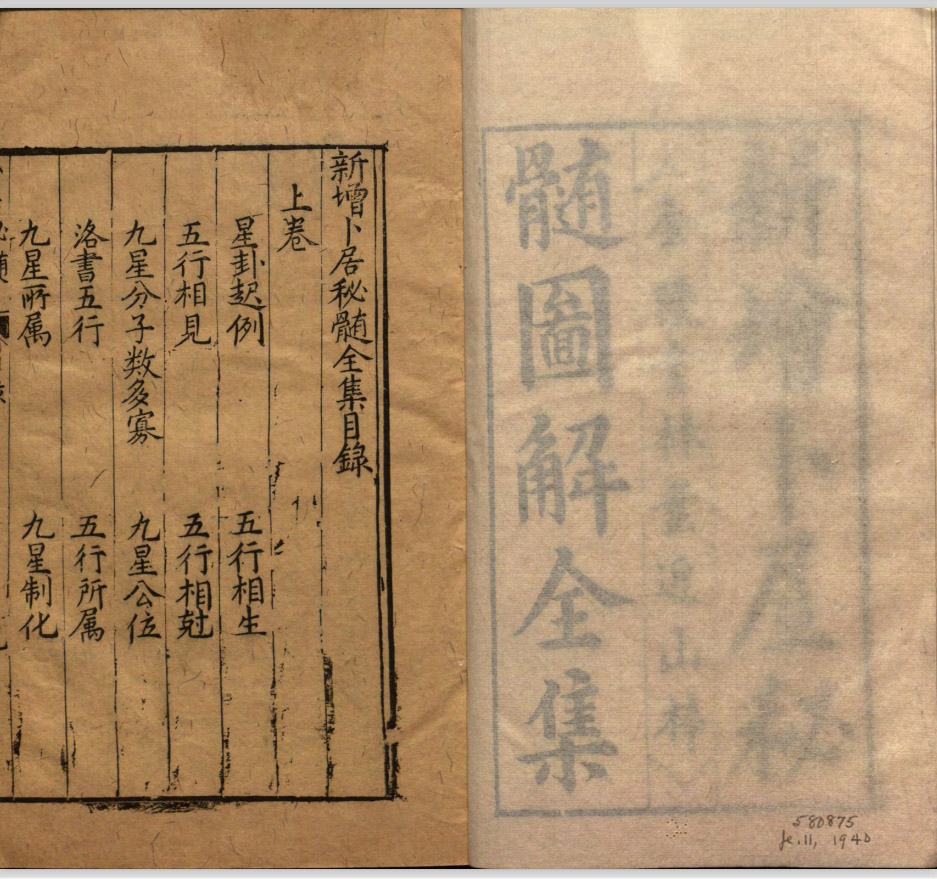 卜居秘
林
近山梓
髄圖解全集
580875
Je.11, 1940
新增卜居秘髄全集目錄
上卷
星卦起例
五行相生
五行相見
五行相尅
九星分子数多寡
九星公位
洛書五行
五行所属
九星所属
九星制化